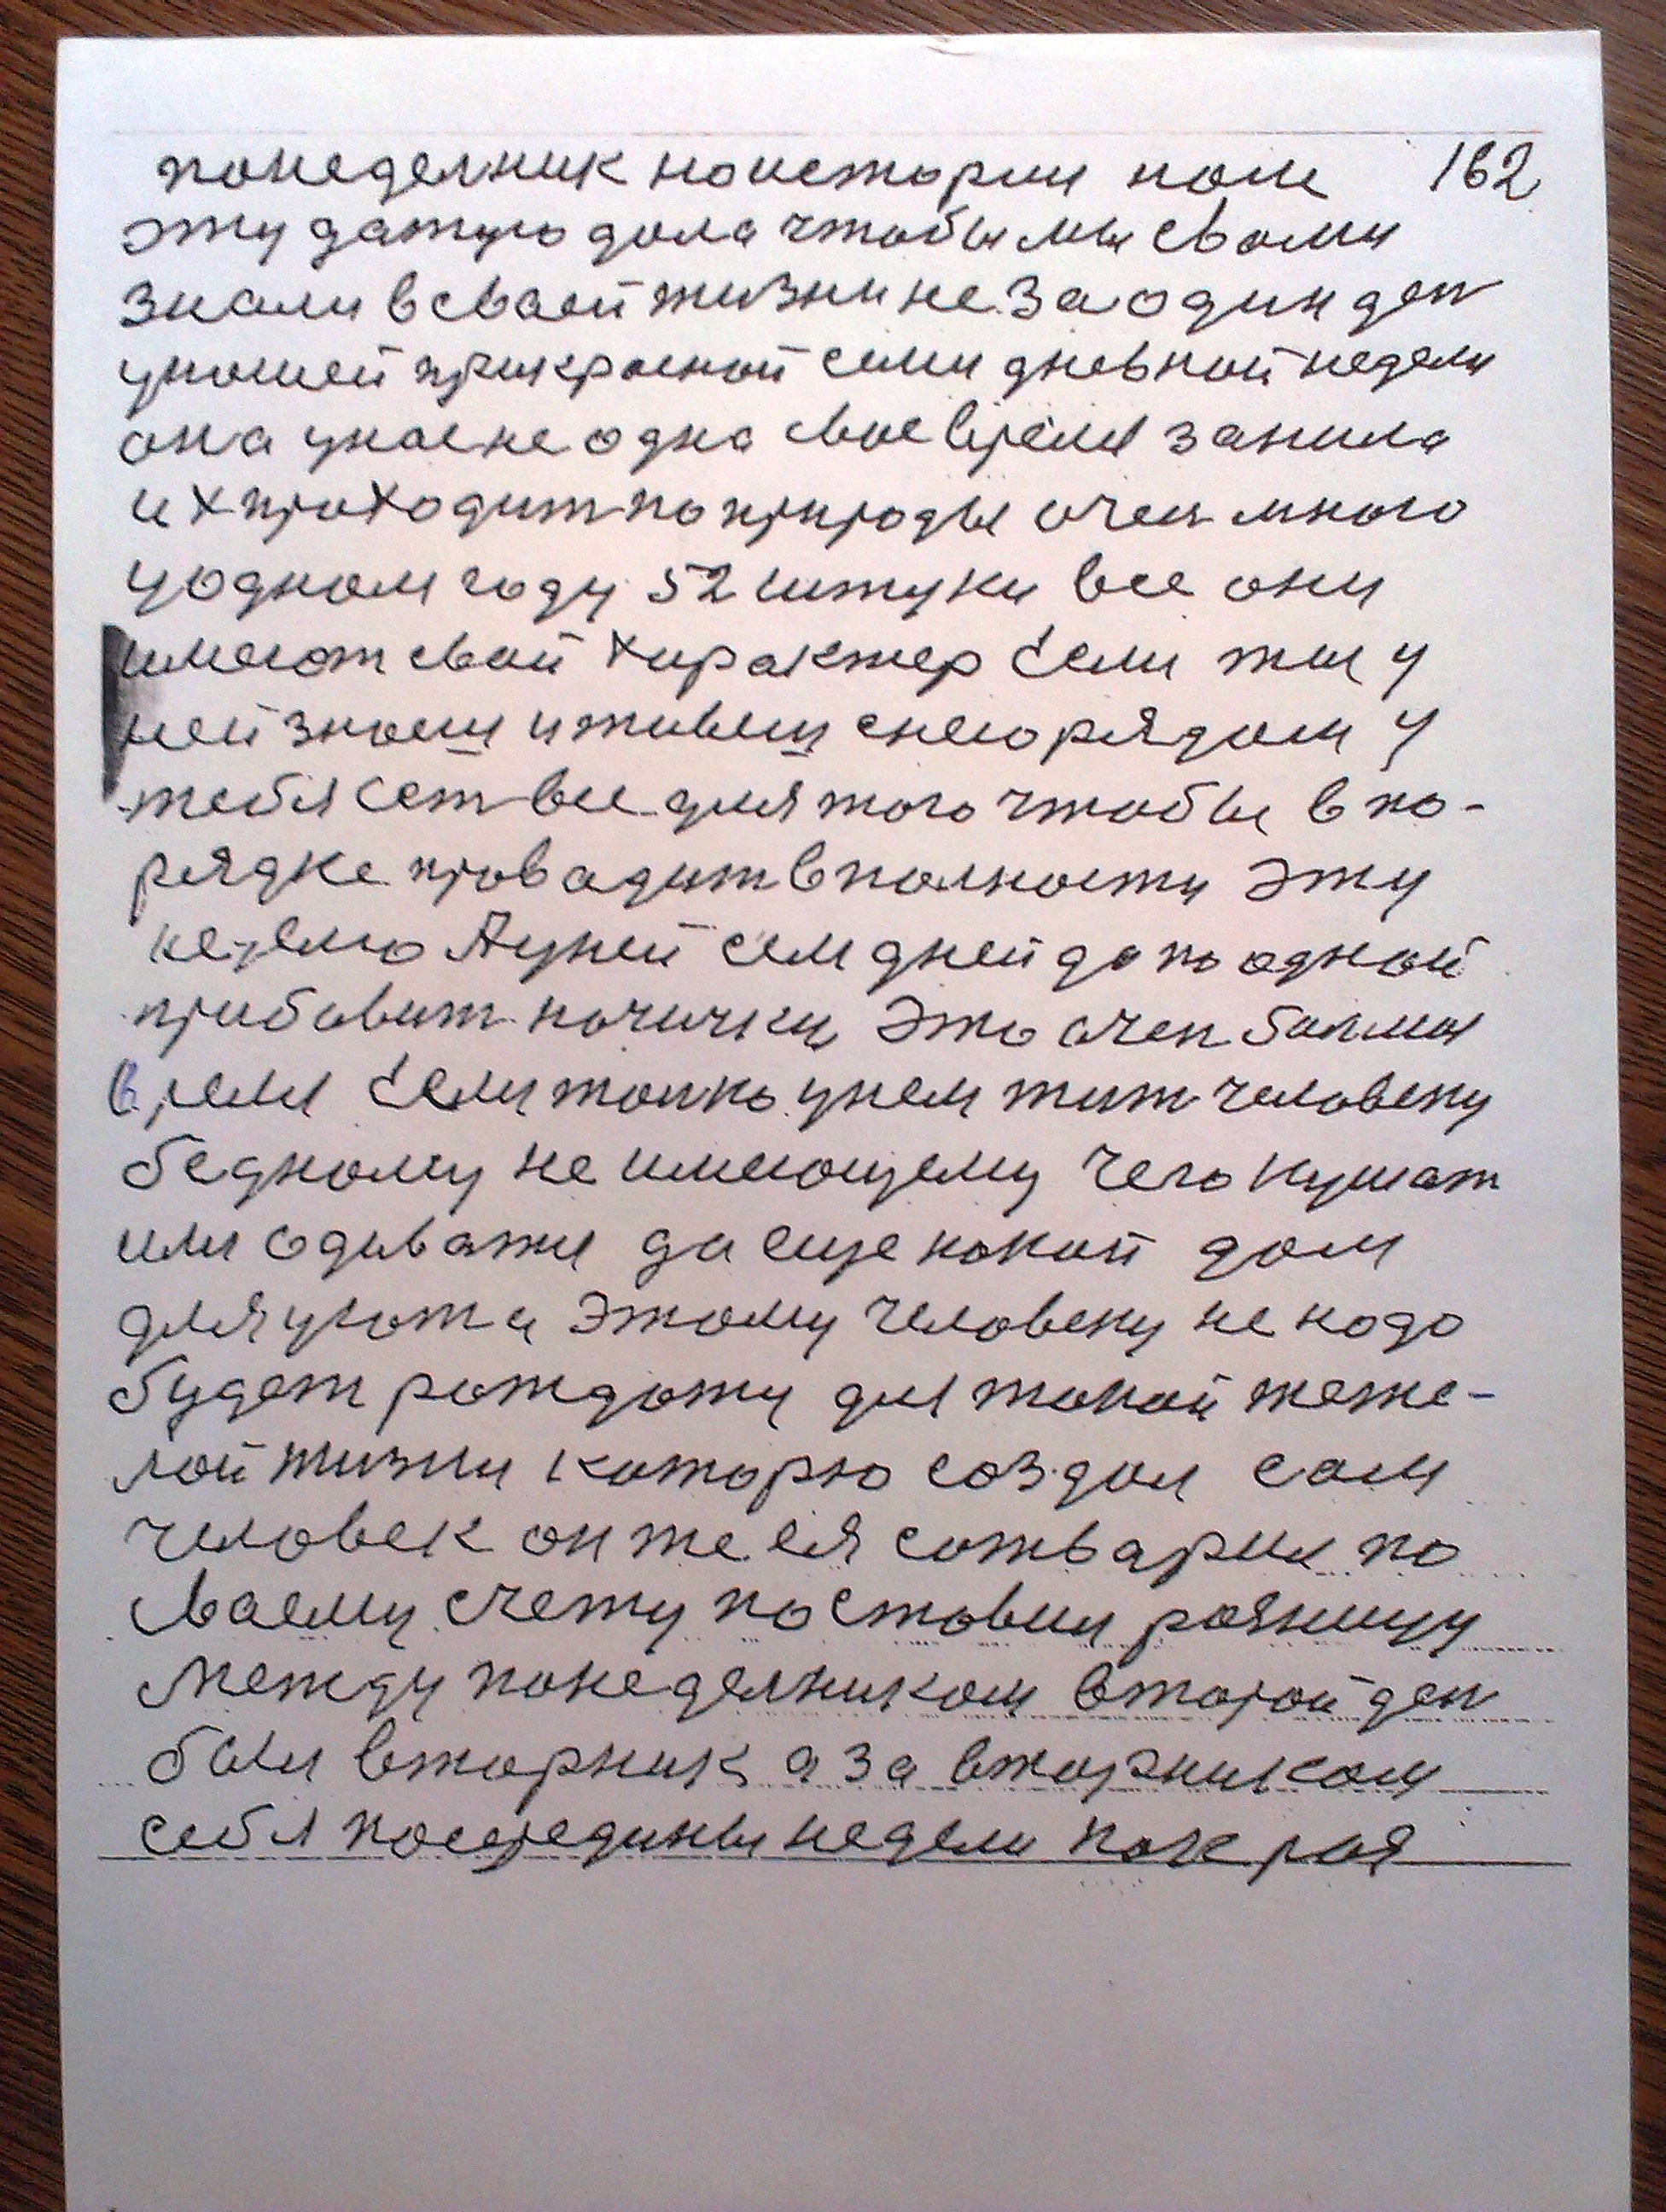 понеделник наистории нам 162
эту датую дала чтобы мы свами
знали в сваей жизни не за один ден
унашей прикрасной семи дневной недели
она унас не одна свое время занила
их проходит по природы очен много
уодном году 52 штуки все они
имеют свой характер Если ты у
ней знаеш и живеш снею рядом у
тебя Сет все для того чтобы в по-
рядке провадит вполности эту
неделю Ауней сем дней да по одной
прибавит ночички Это очен болшы
время Если толко унем жит человеку
бедному не имеющему чего кушат
или одивати да еще какой дом
для уюта Этому человеку не надо
будет рождати для такой теже-
лой жизни каторю создал сам
человек он же ея сотварил по
сваему счету поставил разницу
между понеделником второй ден
был вторник а за вторником
себя посредины недели